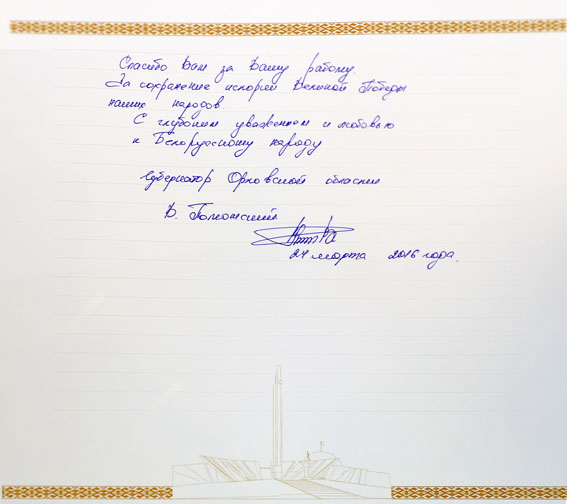 Спасибо Вам за Вашу работу.
За сохранение истории Великой Победы
наших народов.
С глубоким уважением и любовью
к Белорусскому народу
Губернатор Орловской области
В. Потомский
24 марта 2016 года.